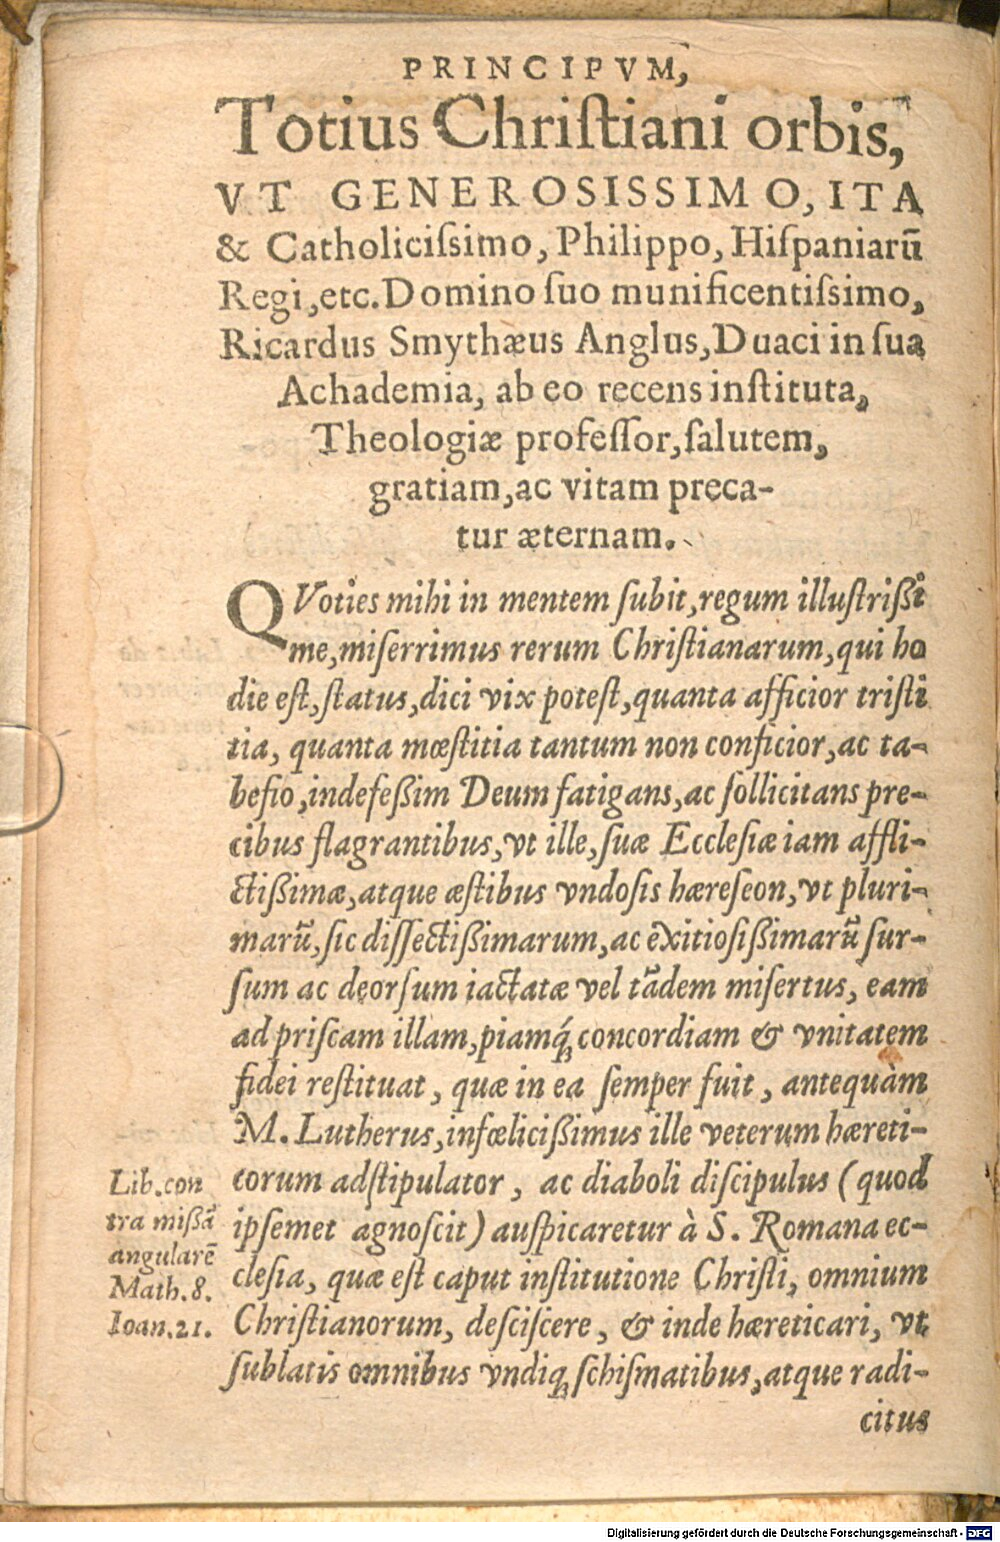 PRINCIPVM,
Totius Chriſtiani orbis,
VT GENEROSISSIMO, ITA
& Catholiciſsimo, Philippo, Hiſpaniarū
Regi, etc. Domino ſuo munificentiſsimo,
Ricardus Smythæus Anglus, Duaci in ſua
Achademia, ab eo recens inſtituta,
Theologiæ profeſſor, ſalutem,
gratiam, ac vitam preca-
tur æternam.
QVoties mihi in mentem ſubit, regum illuſtrißi
me, miſerrimus rerum Chriſtianarum, qui ho
die eſt, ſtatus, dici vix poteſt, quanta afficior triſti
tia, quanta mœſtitia tantum non conficior, ac ta-
beſio, indefeßim Deum fatigans, ac ſollicitans pre-
cibus flagrantibus, vt ille, ſuæ Eccleſiæ iam affli-
ctißimæ, atque æſtibus vndoſis hæreſeon, vt pluri-
marū, ſic diſſectißimarum, ac exitioſißimarū ſur-
ſum ac deorſum iactatæ vel tādem miſertus, eam
ad priſcam illam, piamq́; concordiam & vnitatem
fidei reſtituat, quæ in ea ſemper fuit, antequàm
M. Lutherus, infœlicißimus ille veterum hæreti-
corum adſtipulator, ac diaboli diſcipulus (quod
ipſemet agnoſcit) auſpicaretur à S. Romana ec-
cleſia, quæ eſt caput inſtitutione Chriſti, omnium
Chriſtianorum, deſciſcere, & inde hæreticari, vt
ſublatis omnibus vndiq; ſchiſmatibus, atque radi-
citus
Lib. con
tra miſſā
angularē
Math. 8.
Ioan. 21.
Digitalisierung gefördert durch die Deutsche Forschungsgemeinschaft - DFG